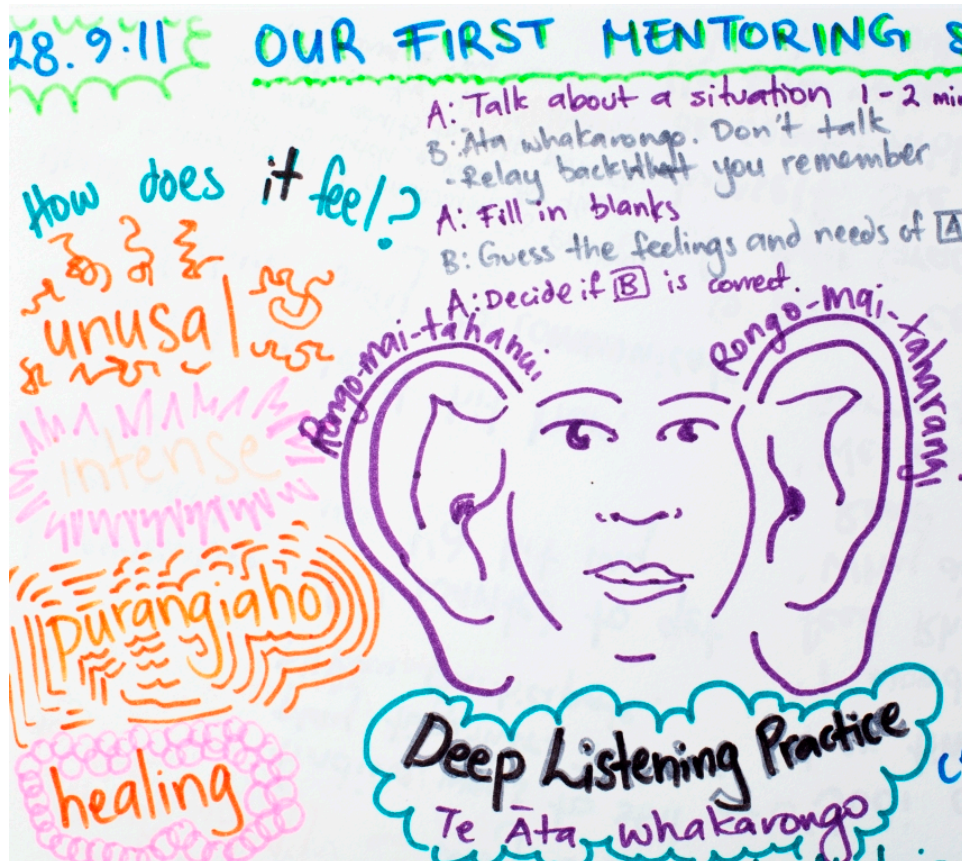 28.9.11 OUR FIRST MENTORING
A: Talk about a situation 1-2 min
B: Āta whakarongo. Don't talk
-Relay back what you remember
A: Fill in blanks
B: Guess the feelings and needs of A
A: Decide if B is correct.
How does it feel?
unusal
intense
pūrangiaho
healing
Rongo-mai-tahanui
Rongo-mai-taharangi
Deep Listening Practice
Te Āta whakarongo